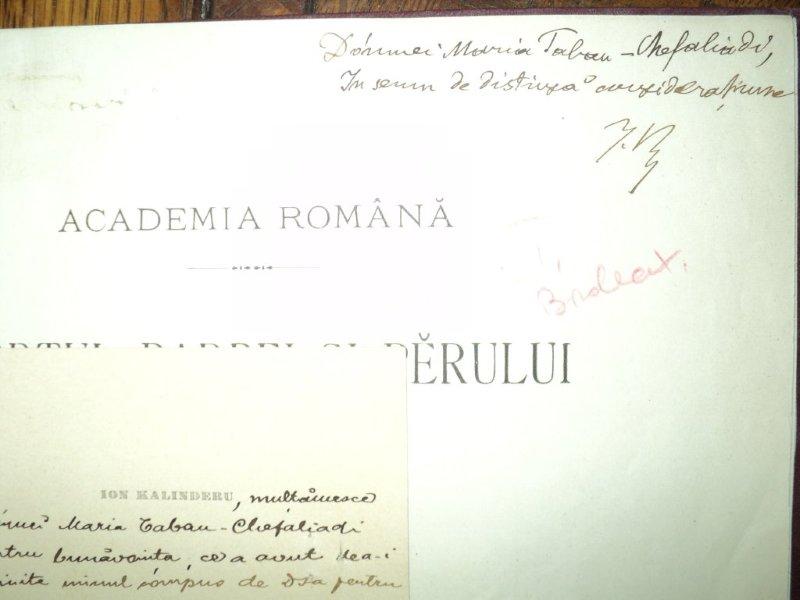 Dómnei Maria Taban-Chefaliadi,
In semn de distinsă considerațiune
ACADEMIA ROMÂNĂ
BARBEI ȘI PĔRULUI
ION KALINDERU, multămesce
Maria Taban-Chefaliadi
bunăvointa, ce a avut de a-i
imnul compus de Dsa pentru